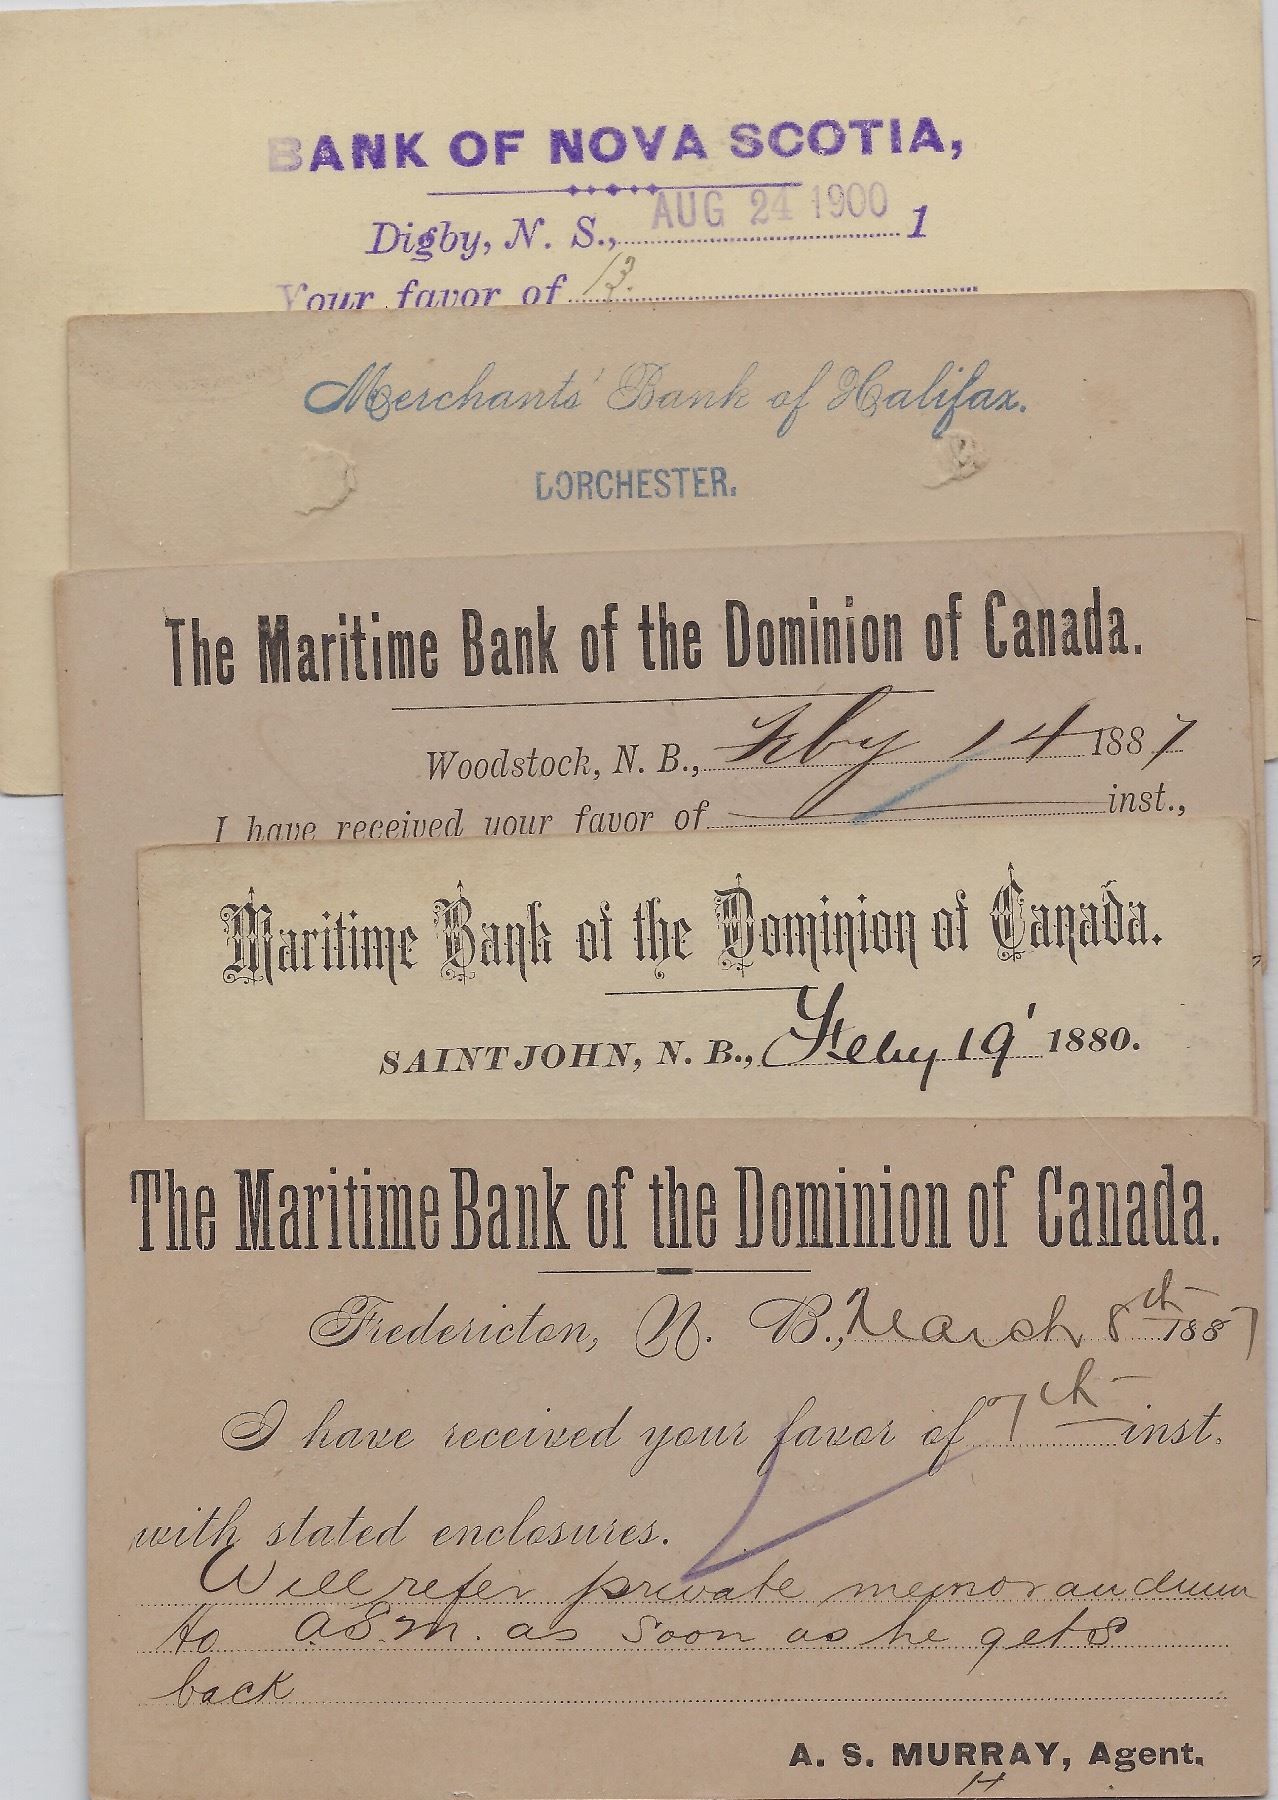 BANK OF NOVA SCOTIA,
Digby, N. S., AUG 24 1900 1
Your favor of 13.
Merchants' Bank of Halifax.
DORCHESTER.
The Maritime Bank of the Dominion of Canada.
Woodstock, N. B., Feby 14 1887
I have received your favor of inst.,
Maritime Bank of the Dominion of Canada.
SAINT JOHN, N. B., Feby 19' 1880.
The Maritime Bank of the Dominion of Canada.
Fredericton, N. B., March 8th 1887
I have received your favor of 7th inst.
with stated enclosures.
Will refer private memorandum
to A.S.M. as soon as he gets
back
A. S. MURRAY, Agent.
H